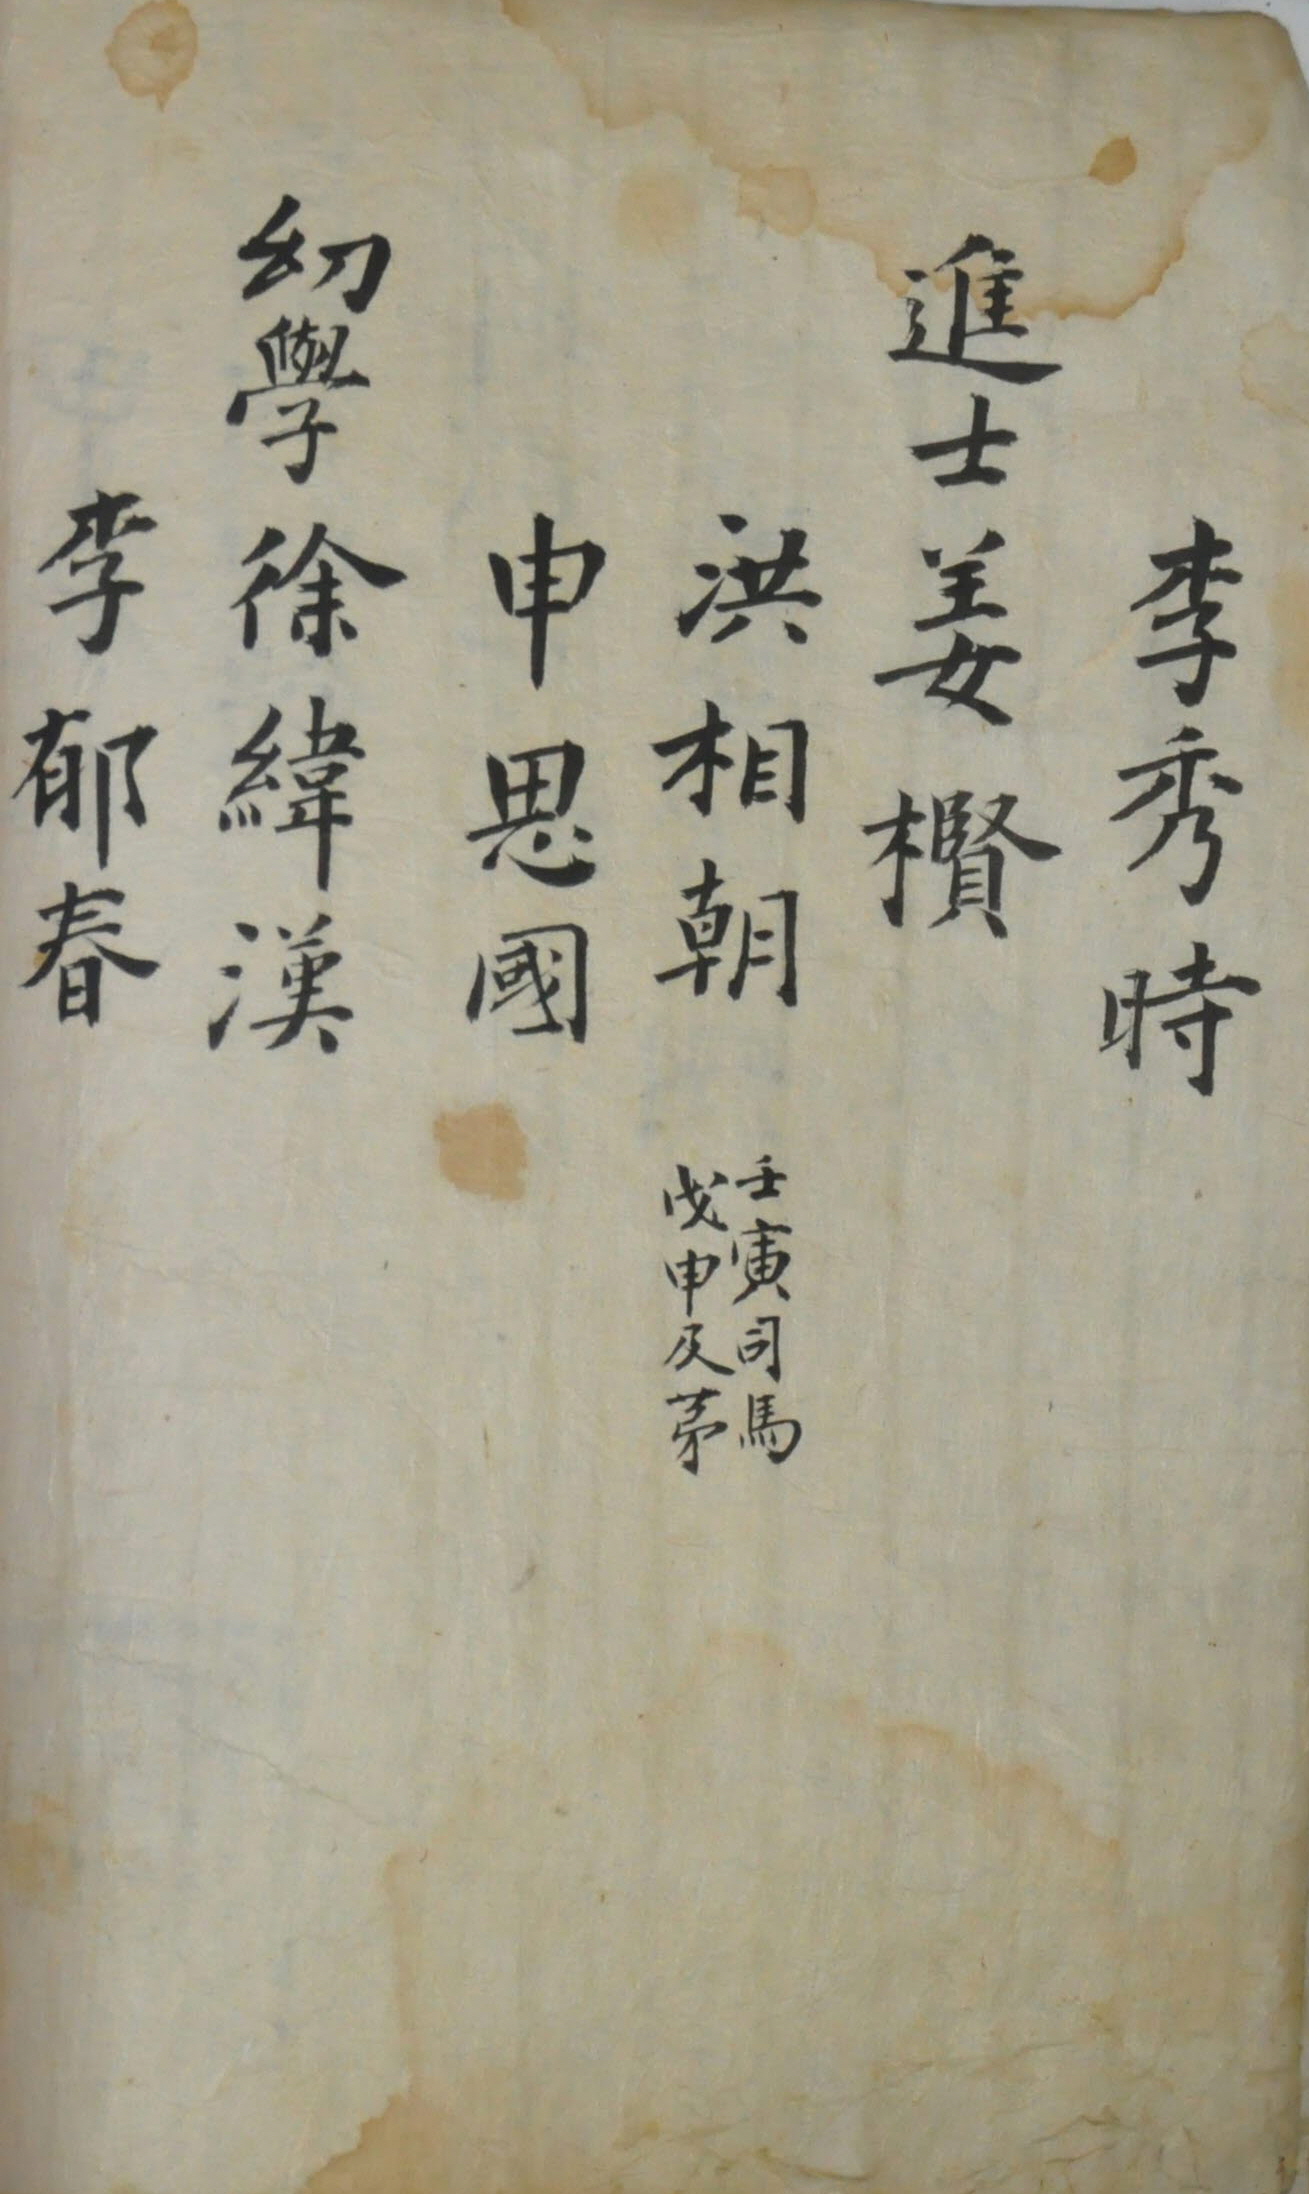 李秀時
進士姜𣠲
洪相朝
壬寅司馬
戊申及茅
申思國
幼學徐緯漢
李郁春